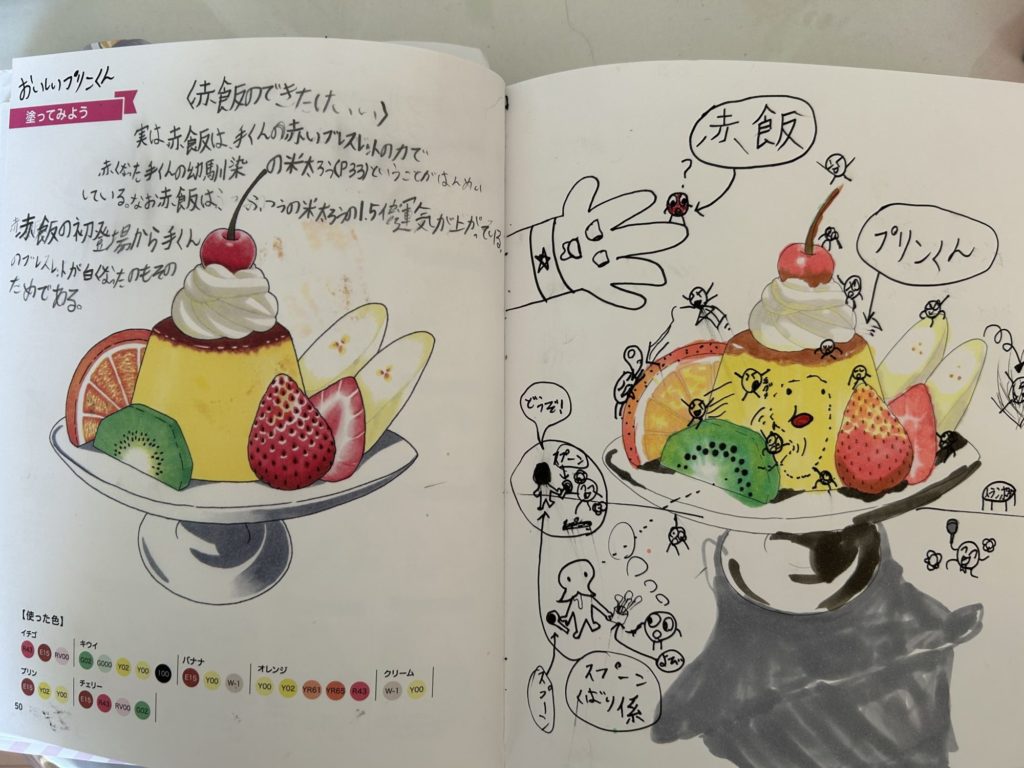 おいしいプリンくん
塗ってみよう
〈赤飯のできたけ、、い〉
実は、赤飯は、手くんの赤いブレスレットの力で
赤くなった手くんの幼馴染の米太ろう(P33)ということがはんめい
している。なお赤飯は、ふつうの米太ろうの1.5倍運気が上がっている。
赤飯の初登場から手くん
のブレスレットが白くなったのもその
ためである。
【使った色】
イチゴ
R43 E15 RV00
キウイ
G02 G000 Y02 Y00 100
バナナ
E15 Y00 W-1
オレンジ
Y00 Y02 YR61 YR65 R43
クリーム
W-1 Y00
プリン
E15 Y02 Y00
チェリー
E15 R43 RV00 G02
50
赤飯
?
プリンくん
どうぞ!
スプーン
スプーン
スプーン
くばり係